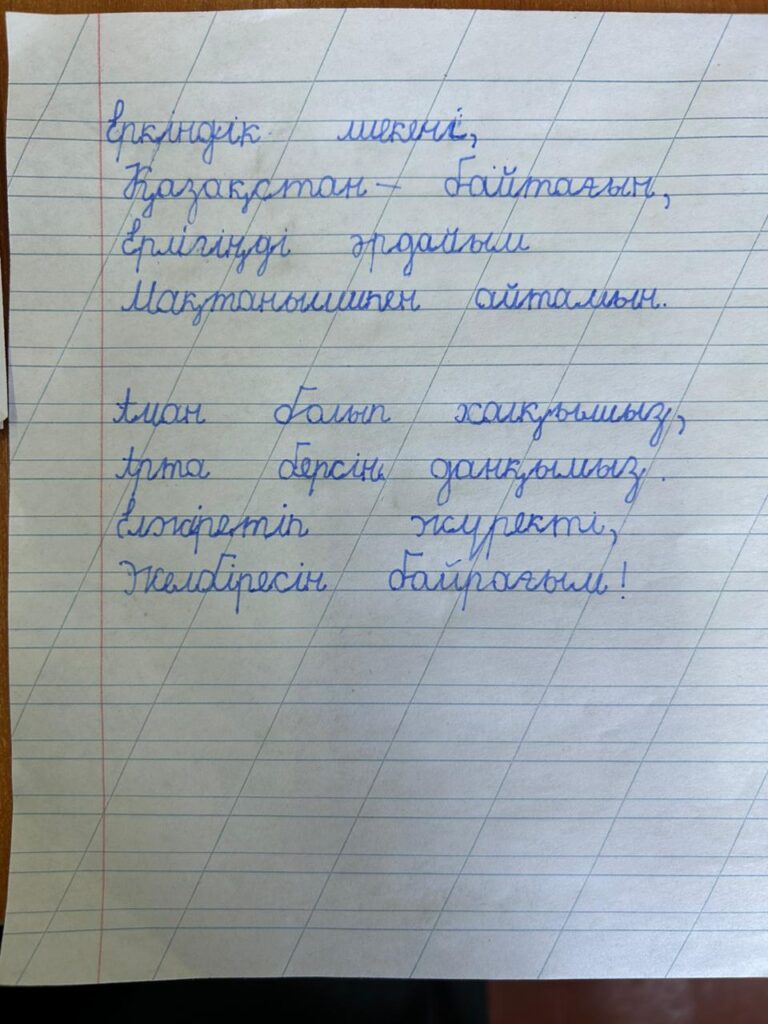 Еркіндік мекені,
Қазақстан – байтағын,
Ерлігіңді әрдайым
Мақтанышпен айтамын.
Аман болып халқымыз,
Арта берсін данқымыз.
Елжіретіп жүректі,
Желбіресін байрағым!